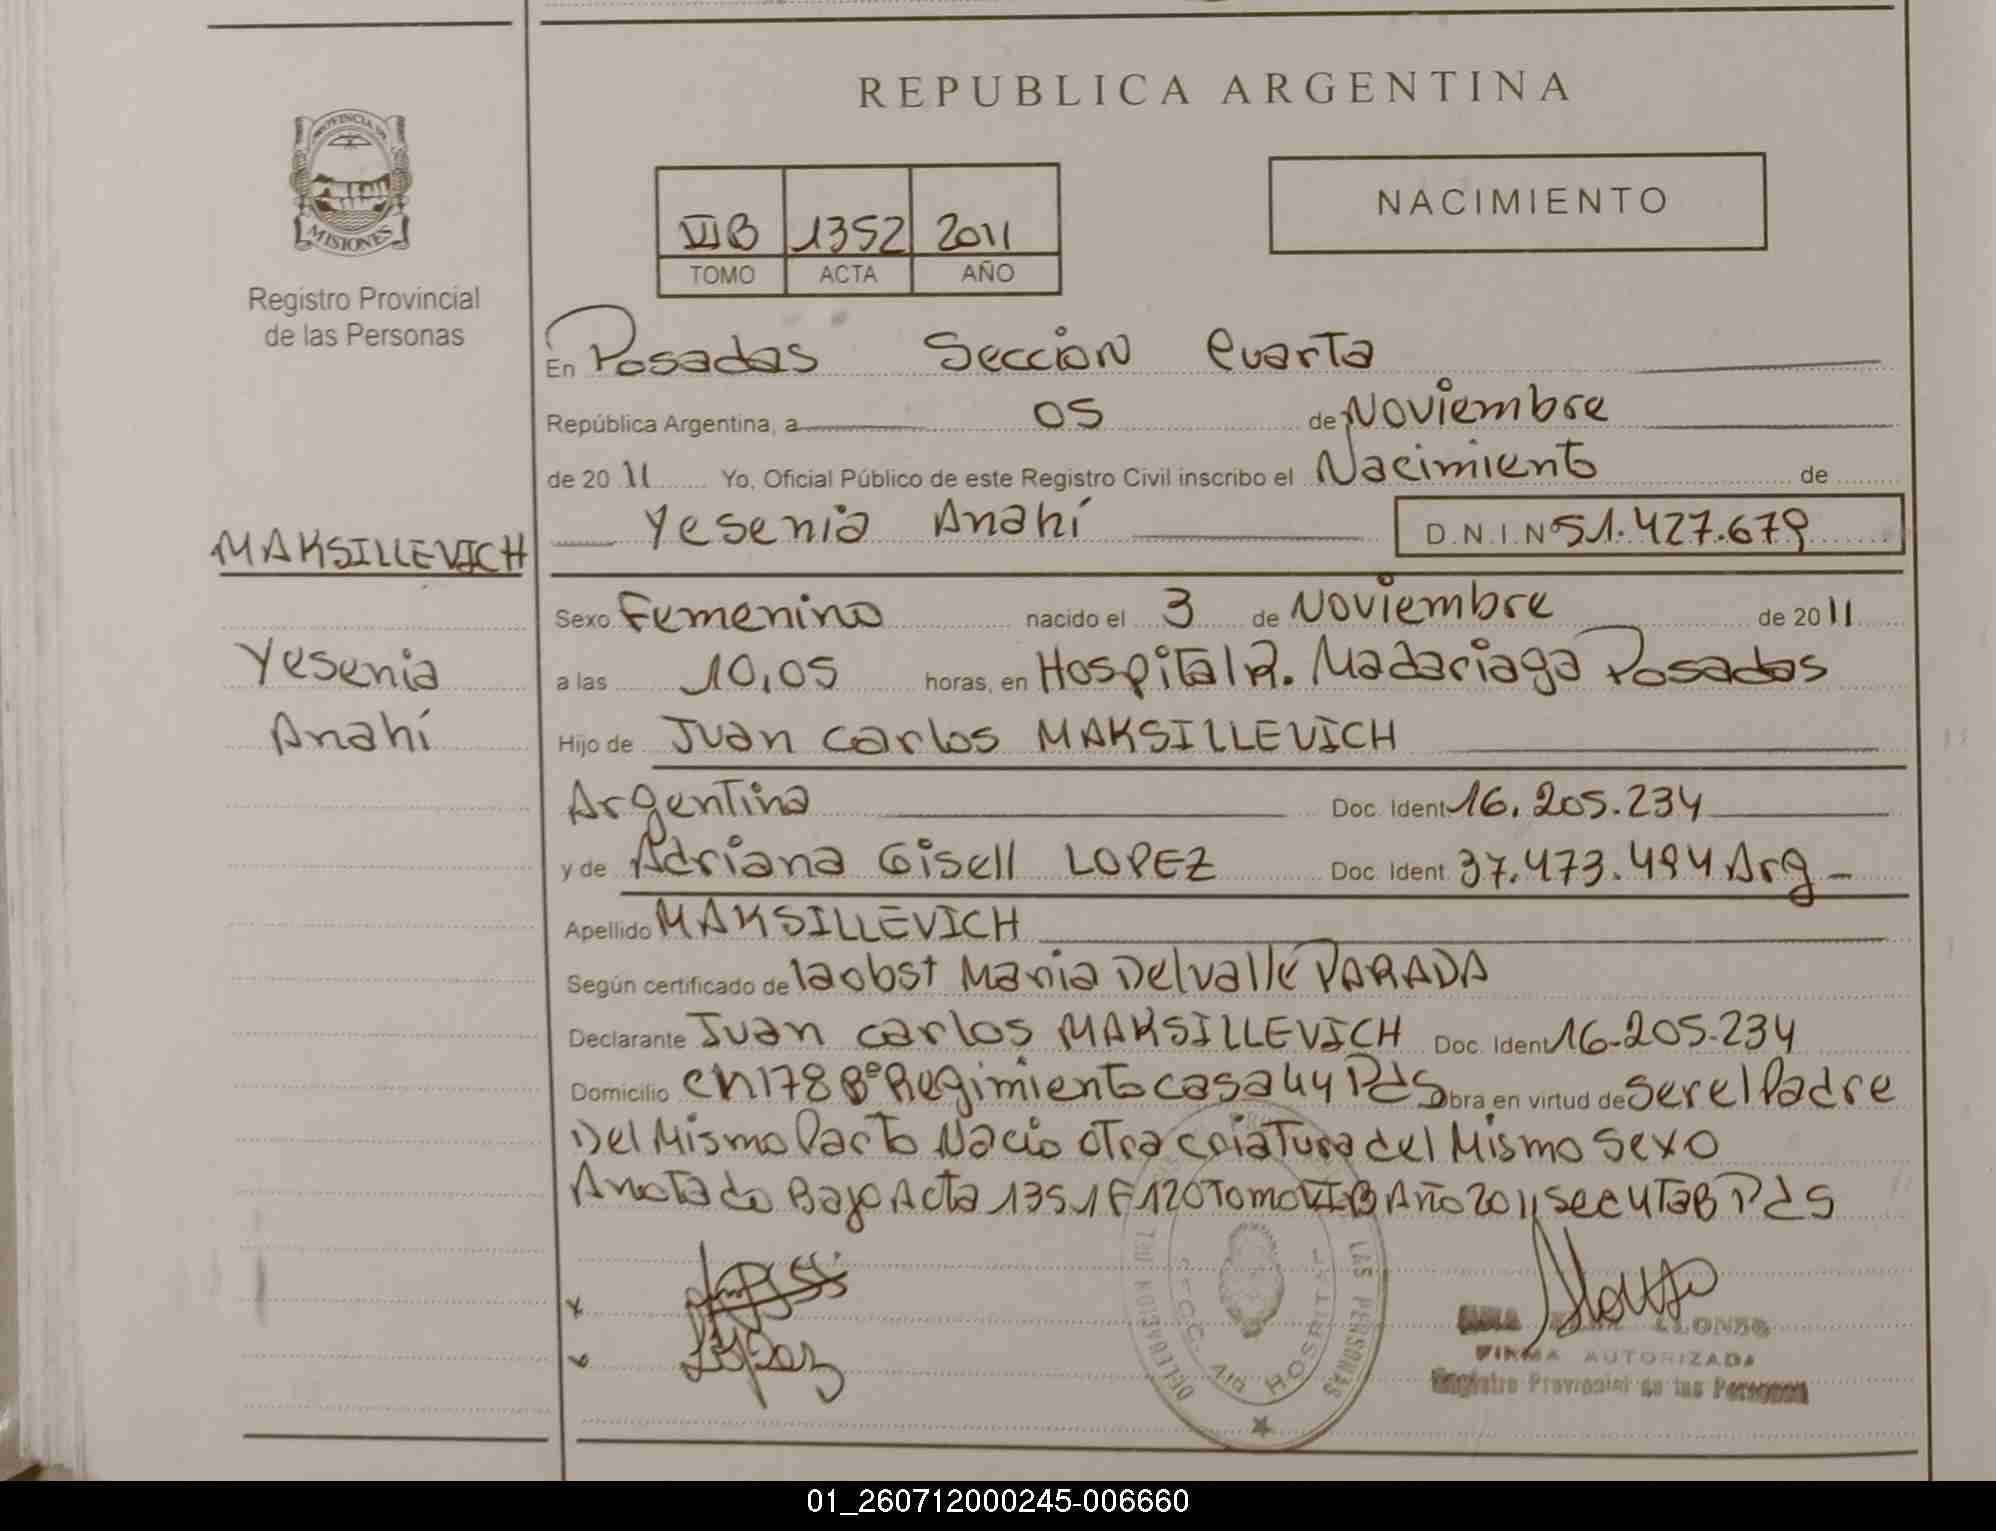 REPUBLICA ARGENTINA
PROVINCIA DE
MISIONES
Registro Provincial
de las Personas
VIB 1352 2011
TOMO ACTA AÑO
NACIMIENTO
En Posadas Sección Cuarta
República Argentina, a 05 de Noviembre
de 2011 Yo, Oficial Público de este Registro Civil inscribo el Nacimiento de
Yesenia Anahí D.N.I.N 51.427.679
MAKSILLEVICH
Yesenia
Anahí
Sexo Femenino nacido el 3 de Noviembre de 2011
a las 10,05 horas, en Hospital R. Madariaga Posadas
Hijo de Juan Carlos MAKSILLEVICH
Argentina Doc. Ident 16.205.234
y de Adriana Gisell LOPEZ Doc. Ident. 37.473.494 Arg
Apellido MAKSILLEVICH
Según certificado de la obst Maria Delvalle PARADA
Declarante Juan Carlos MAKSILLEVICH Doc. Ident 16-205-234
Domicilio Ch 178 8º Regimiento casa 44 Pds Obra en virtud de ser el Padre
Del Mismo Parto Nacio otra criatura del Mismo Sexo
Anotado Bajo Acta 1351 F 120 Tomo VIB Año 2011 Sec 4TaB Pds
LAS PERSONAS
HOSPITAL
Lopez
ALONSO
FIRMA AUTORIZADA
Registro Provincial de las Personas
01_260712000245-006660